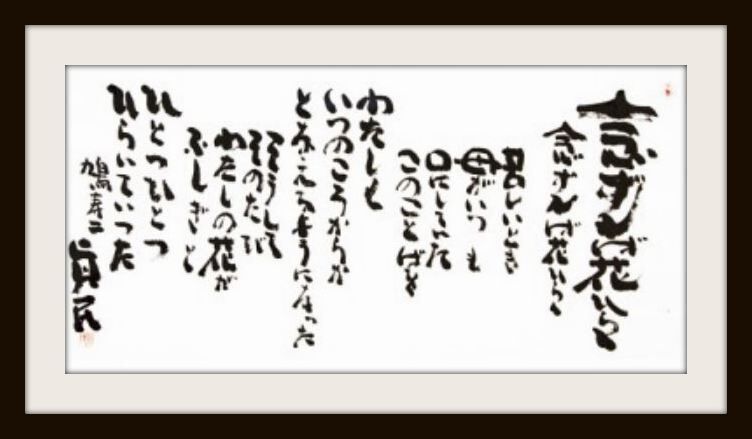 念ずれば花ひらく
念ずれば花ひらく
苦しいとき
母がいつも
口にしていた
このことばを
わたしも
いつのころからか
となえるようになった
そうして
そのたび
わたしの花が
ふしぎと
ひとつひとつ
ひらいていった
鳩寿二
真民